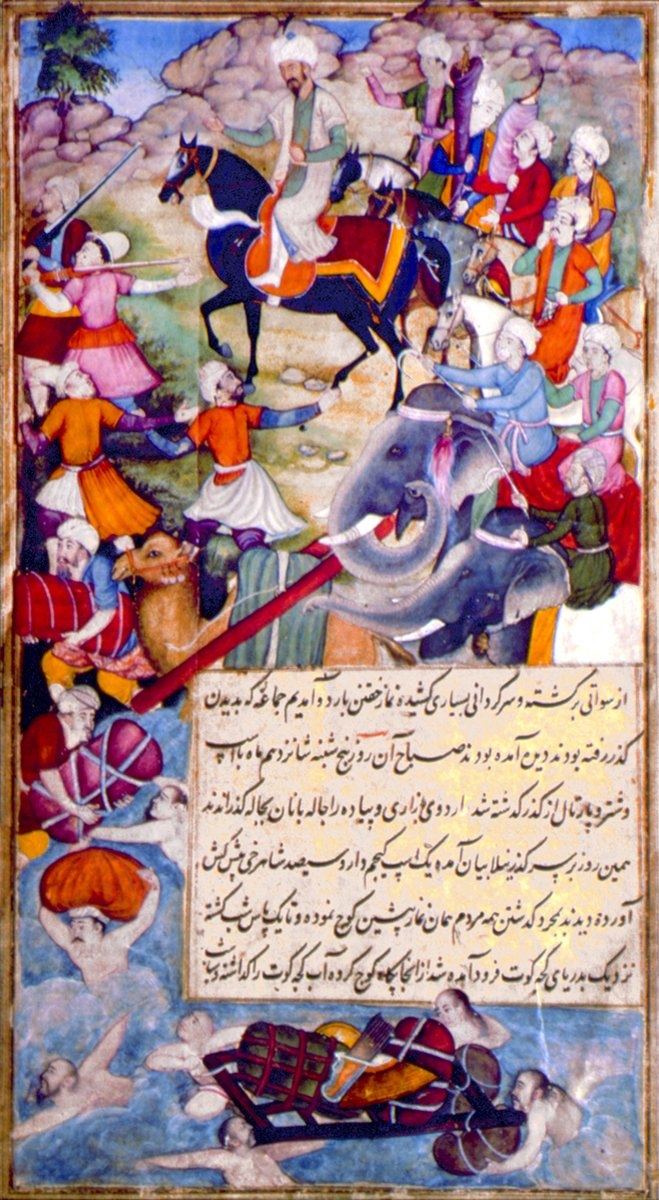 از سواتی برگشته و سرگردانی بسیاری کشیده نماز خفتن بارد و آمدیم جماعه که بدیدن
گذر رفته بودند دین آمده بودند صباح آن روز پنج شنبه شانزدهم ماه با اسپ
و شتر و پارتال از گذر گذشته شد اردوی بازاری و پیاده را جاله بانان بجاله گذراندند
همین روز بر سر گذر نیلابیان آمده یک اسپ کیجم دار و سیصد شاهرخی پیش کش
آورده دیدند بمجرد گذشتن همه مردم همان نماز پیشین کوچ نموده و تا یک پاس شب گشته
نزدیک بدریای کچه کوت فرود آمده شد از انجا پگاه کوچ کرده آب کچه کوت را گذاشته